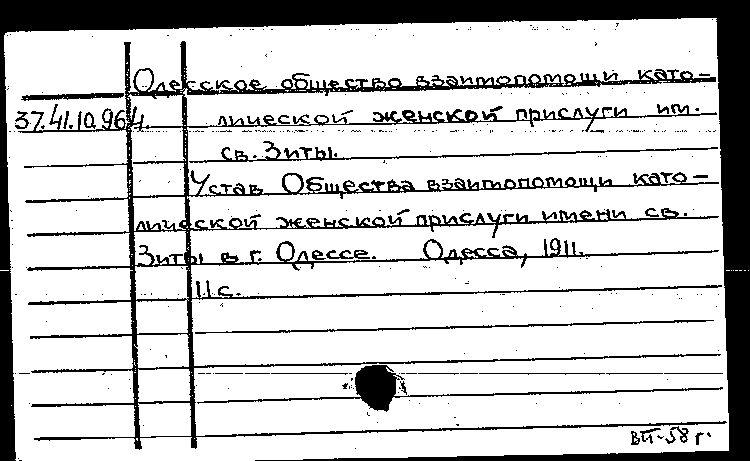 Одесское общество взаимопомощи като-
37.41.10.964. лической женской прислуги им.
св. Зиты.
Устав Общества взаимопомощи като-
лической женской прислуги имени св.
Зиты в г. Одессе. Одесса, 1911.
11 с.
58 г.